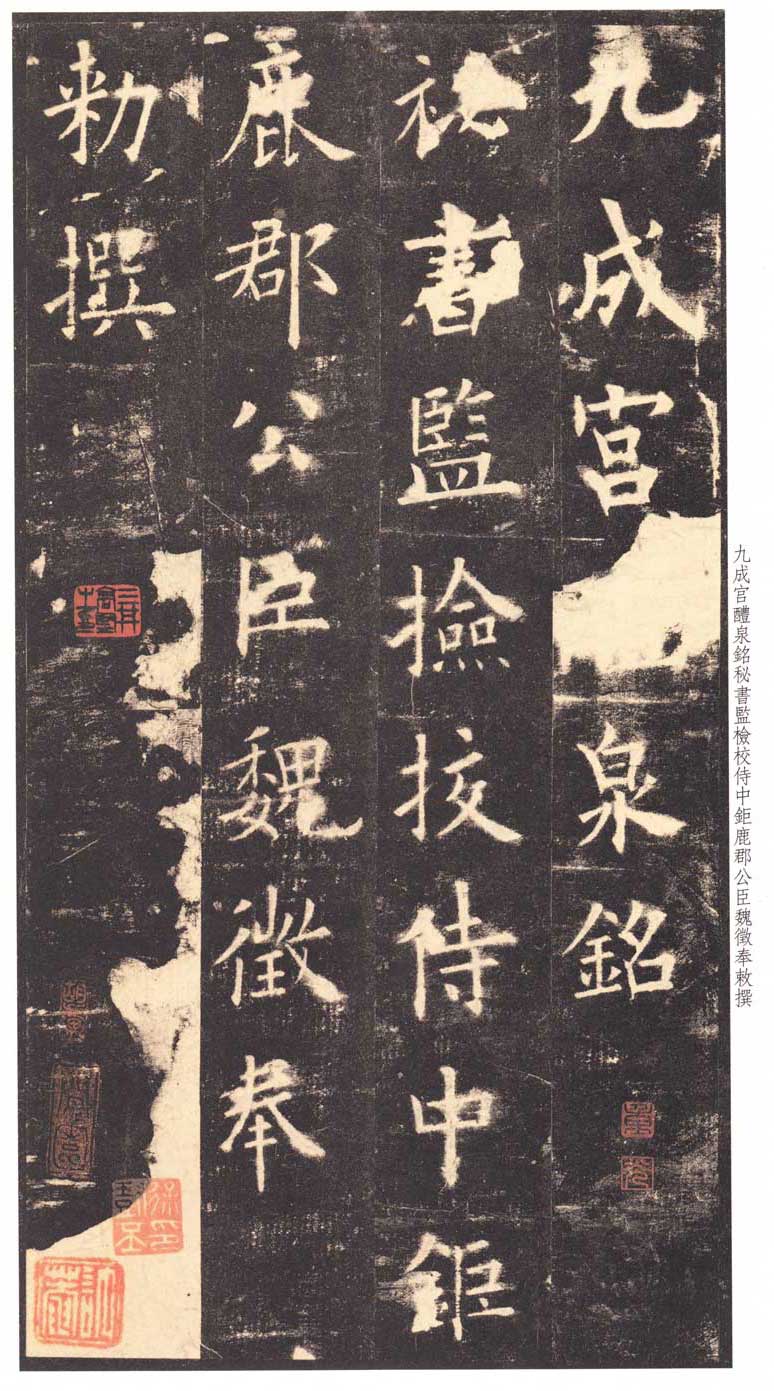 九成宮泉銘
祕書監撿挍侍中鉅
鹿郡公臣魏徵奉
勑撰
九成宮醴泉銘秘書監檢校侍中鉅鹿郡公臣魏徵奉敕撰